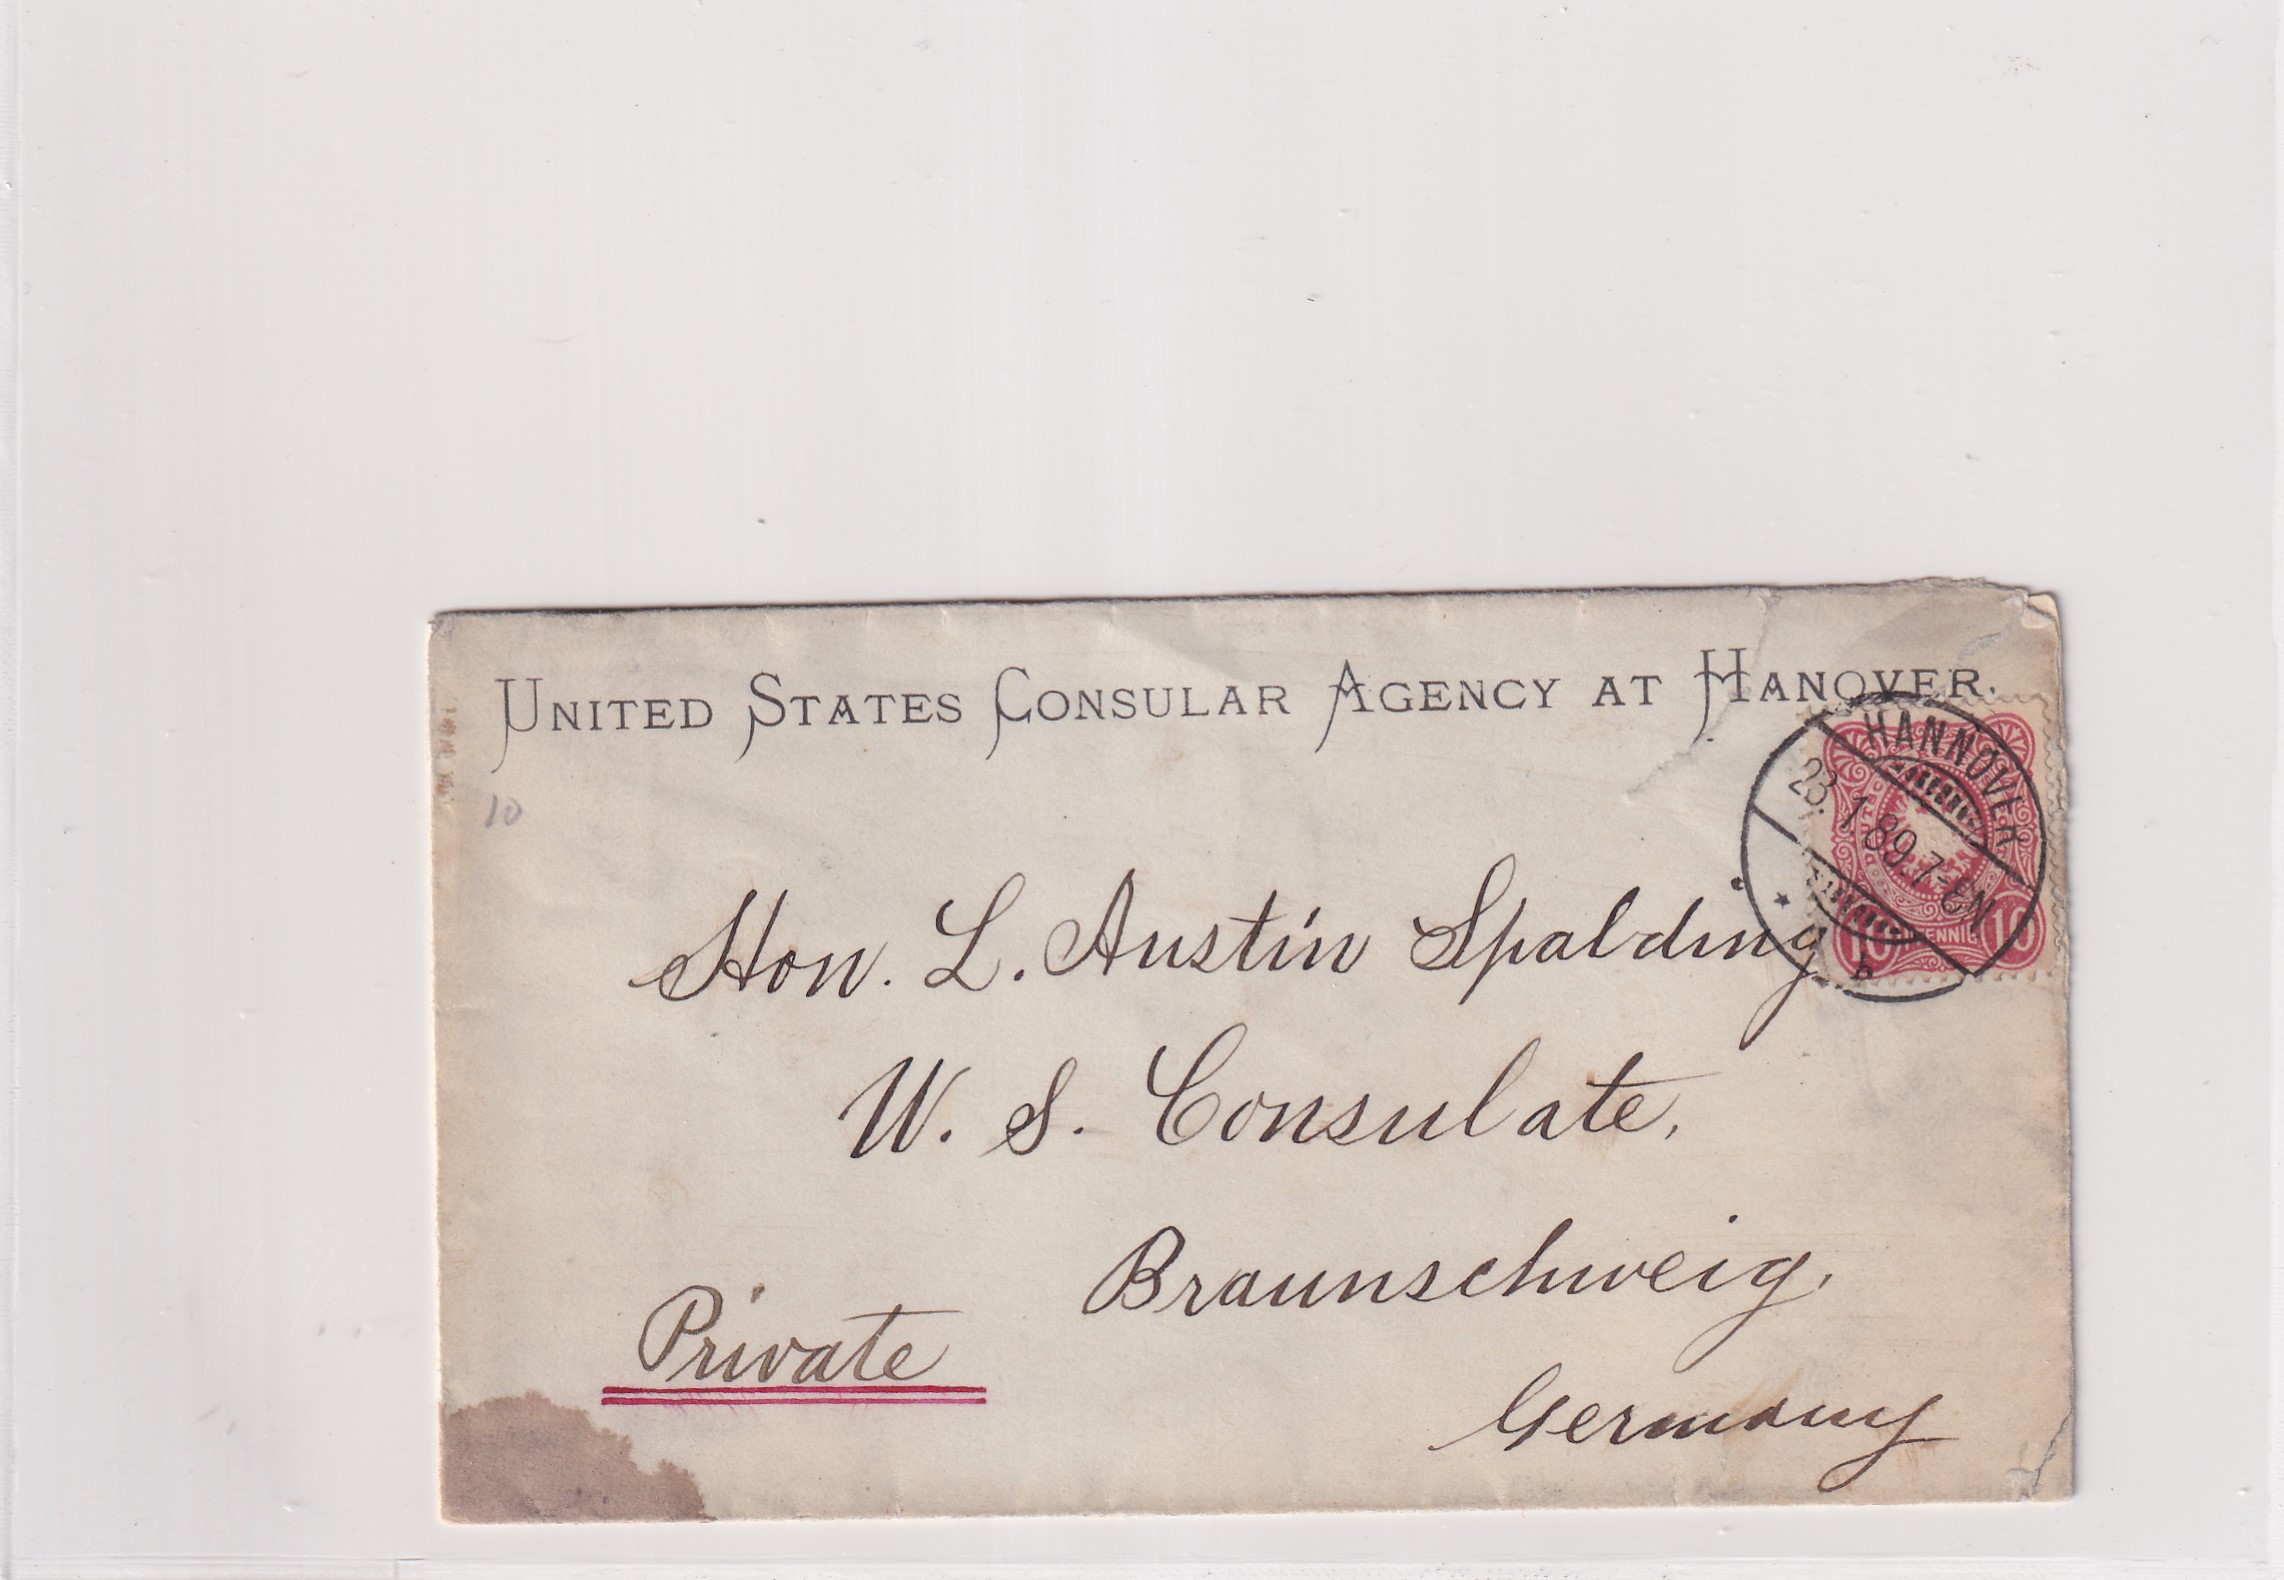 UNITED STATES CONSULAR AGENCY AT HANOVER.
HANNOVER
23.1.89.7-8N
b
10 PFENNIG 10
10
Hon. L. Austin Spalding
U. S. Consulate,
Braunschweig,
Private
Germany